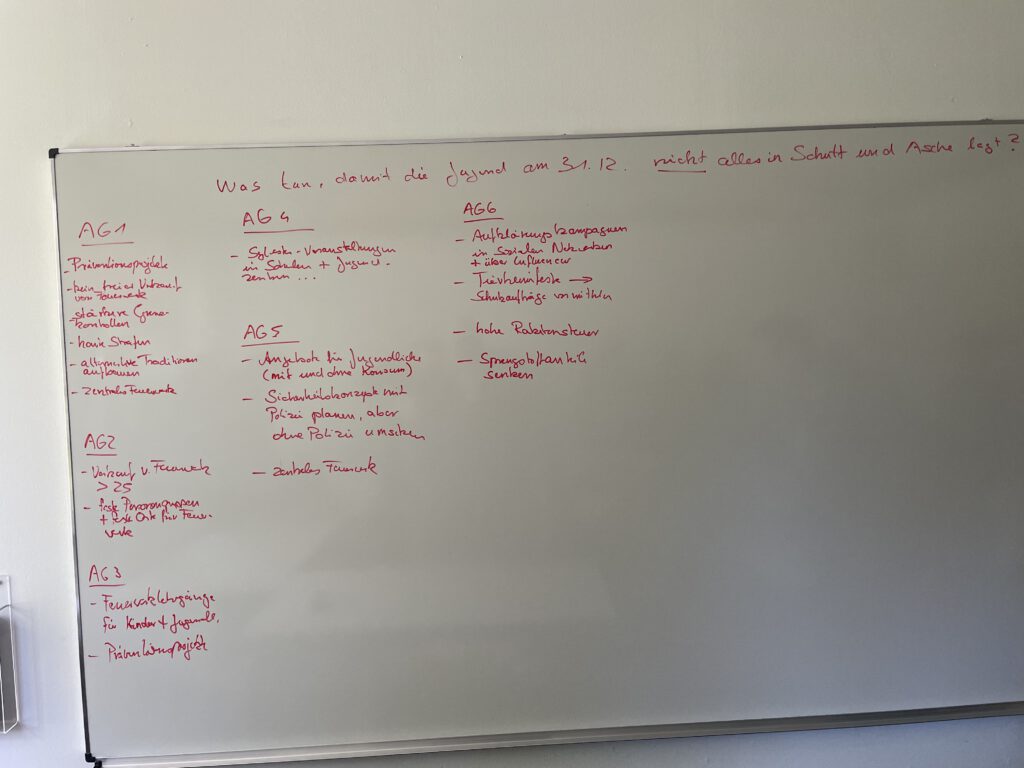 Was tun, damit die Jugend am 31.12. nicht alles in Schutt und Asche legt?
AG1
- Präventionsprojekte
- kein freier Verkauf
von Feuerwerk
- stärkere Grenz-
kontrollen
- harte Strafen
- alternative Traditionen
aufbauen
- zentrales Feuerwerk
AG2
- Verkauf v. Feuerwerk
> 25
- feste Personengruppen
+ feste Orte für Feuer-
werk
AG3
- Feuerwerkslehrgänge
für Kinder + Jugendl.
- Präventionsprojekte
AG4
- Silvester-Veranstaltungen
in Schulen + Jugend-
zentren ...
AG5
- Angebote für Jugendliche
(mit und ohne Konsum)
- Sicherheitskonzepte mit
Polizei planen, aber
ohne Polizei umsetzen
- zentrales Feuerwerk
AG6
- Aufklärungskampagnen
in sozialen Netzwerken
+ über Influencer
- Tierheimfeste →
vermitteln
- hohe Raketensteuer
- Sprengstoffanteil
senken